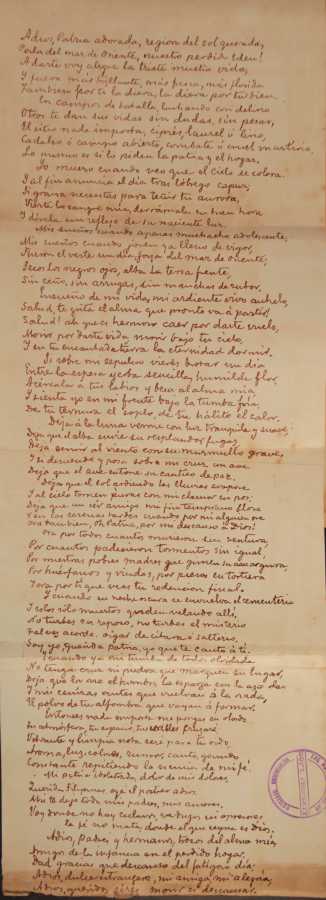 Adios, Patria adorada, region del sol querida,
Perla del mar de Oriente, nuestro perdido Eden!
A darte voy alegre la triste mustia vida,
Y fuera más brillante, más fresca, más florida
Tambien por tí la diera, la diera por tu bien.
En campos de batalla, luchando con delirio
Otros te dan sus vidas sin dudas, sin pesar;
El sitio nada importa, ciprés, laurel ó lirio,
Cadalso ó campo abierto, combate ó cruel martirio,
Lo mismo es si lo piden la patria y el hogar.
Yo muero cuando veo que el cielo se colora
Y al fin anuncia el día tras lóbrego capuz;
Si grana necesitas para teñir tu aurora,
Vierte la sangre mía, derrámala en buen hora
Y dórela un reflejo de su naciente luz.
Mis sueños cuando apenas muchacho adolescente,
Mis sueños cuando joven ya lleno de vigor,
Fueron el verte un día, joya del mar de oriente,
Secos los negros ojos, alta la tersa frente,
Sin ceño, sin arrugas, sin manchas de rubor.
Ensueño de mi vida, mi ardiente vivo anhelo,
Salud, te grita el alma que pronto va á partir!
Salud! ah que es hermoso caer por darte vuelo,
Morir por darte vida, morir bajo tu cielo,
Y en tu encantada tierra la eternidad dormir.
Si sobre mi sepulcro vieres brotar un día
Entre la espesa yerba sencilla, humilde flor,
Acercala a tus labios y besa al alma mía,
Y sienta yo en mi frente bajo la tumba fría
De tu ternura el soplo, de tu hálito el calor.
Deja á la luna verme con luz tranquila y suave;
Deja que el alba envíe su resplandor fugaz,
Deja gemir al viento con su murmullo grave,
Y si desciende y posa sobre mi cruz un ave
Deja que el ave entone su cantico de paz.
Deja que el sol ardiendo las lluvias evapore
Y al cielo tornen puras con mi clamor en pos,
Deja que un ser amigo mi fin temprano llore
Y en las serenas tardes cuando por mi alguien ore
Ora tambien, Oh Patria, por mi descanso á Dios!
Ora por todos cuantos murieron sin ventura,
Por cuantos padecieron tormentos sin igual,
Por nuestras pobres madres que gimen su amargura;
Por huérfanos y viudas, por presos en tortura
Y ora por tí que veas tu redencion final.
Y cuando en noche oscura se envuelva el cementerio
Y solos sólo muertos queden velando allí,
No turbes su reposo, no turbes el misterio
Tal vez acorde oigas de citara ó salterio,
Soy yo, querida Patria, yo que te canto á tí.
Y cuando ya mi tumba de todos olvidada
No tenga cruz ni piedra que marquen su lugar,
Deja que la are el hombre, la esparza con la azada,
Y mis cenizas antes que vuelvan á la nada,
El polvo de tu alfombra que vayan á formar.
Entonces nada importa me pongas en olvido
Tu atmósfera, tu espacio, tus valles cruzaré
Vibrante y limpia nota seré para tu oido,
Aroma, luz, colores, rumor, canto, gemido
Constante repitiendo la esencia de mi fé.
Mi patria idolatrada, dolor de mis dolores,
Querida Filipinas, oye el postrer adios.
Ahi te dejo todo, mis padres, mis amores.
Voy donde no hay esclavos, verdugos ni opresores,
Donde la fé no mata, donde el que reyna es Dios.
Adios, padres y hermanos, trozos del alma mía,
Amigos de la infancia en el perdido hogar,
Dad gracias que descanso del fatigoso día;
Adios, dulce extrangera, mi amiga, mi alegria,
Adios, queridos séres morir es descansar.